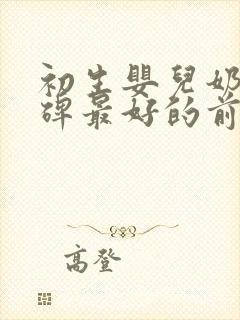 初生嬰兒奶
碑最好的前
高登